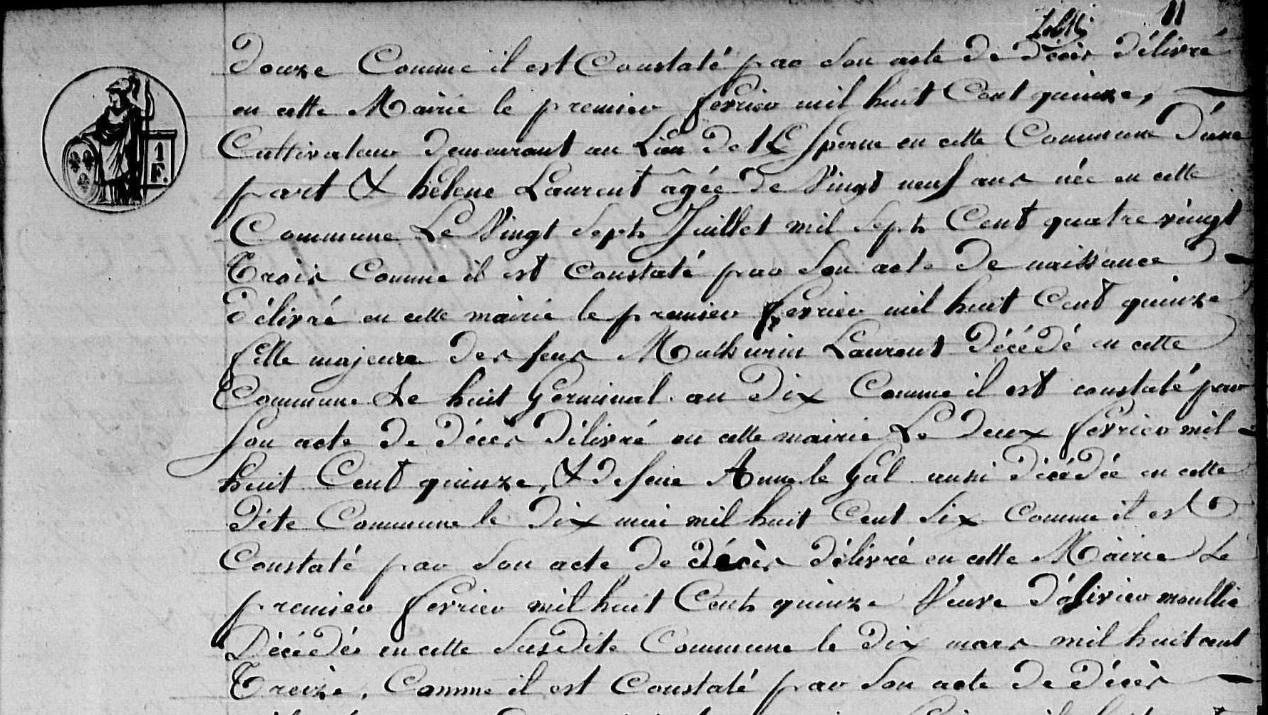 11
douze Comme il est Constaté par son acte de décès délivré
en cette Mairie le premier fevrier mil huit Cent quinze,
Cultivateur demeurant au de en cette Commune d'une
part & helene Laurent âgée de Vingt neuf ans née en cette
Commune Le Vingt Sept Juillet mil Sept Cent quatre vingt
Trois Comme il est Constaté par Son acte de naissance
délivré en cette mairie le premier fevrier mil huit Cent quinze
fille majeure des feus Mathurin Laurent décédé en cette
Commune Le huit Germinal an Dix Comme il est constaté par
Son acte de décès délivré en cette mairie Le deux fevrier mil
huit Cent quinze, & de feue Anne le Gal aussi décédée en cette
dite Commune le Dix mai mil huit Cent Six Comme il est
Constaté par Son acte de décès délivré en cette Mairie Le
premier fevrier mil huit Cent quinze Veuve d'olivier moullic
Décédé en cette Susdite Commune le Dix mars mil huit cent
Treize, Comme il est Constaté par Son acte de décès
1
F.